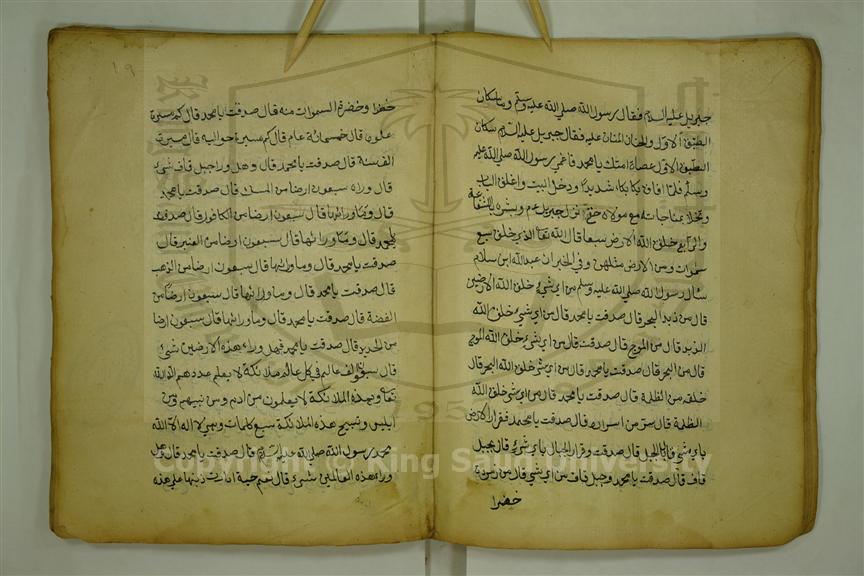 جبريل عليه السلام فقال رسول الله صلي الله عليه وسلم ومن سكان
الطبق الاول والحنان المنان عليه فقال جبريل عليه السلام سكان
الطبق الاول عصاة امتك يا محمد فاغمي رسول الله صلي الله عليه
وسلم فلما افاق بكا بكاء شديدا ودخل البيت واغلق الباب
بمناجات مع مولاه حتي نزل جبريل عم وبشره بالشفاعة
والرابع خلق الله الارض سبعا قال الله تعا الذي خلق سبع
سموات ومن الارض مثلهن وفي الخبر ان عبد الله ابن سلام
سأل رسول الله صلي الله عليه وسلم من اي شيء خلق الله الارضين
قال من زبد البحر قال صدقت يا محمد قال من اي شيء خلق الله
الزبد قال من الموج قال صدقت قال من اي شيء خلق الله الموج
قال من البحر قال صدقت يا محمد قال من اي شيء خلق الله البحر قال
خلقه من الظلمة قال صدقت يا محمد قال من اي شي خلق الله
الظلمة قال من اسراره قال صدقت يا محمد فقرار الارض
باي شي قال بالجبل قال صدقت وقرار الجبال باي شيء قال بجبل
قاف قال صدقت يا محمد وجبل قاف من اي شي قال من زمردة
خضرا
١٩
خضرا وخضرة السموات منه قال صدقت يا محمد قال كم مسيرة
علوه قال خمسمائة عام قال كم مسيرة حواليه قال مسيرت
الف سنة قال صدقت يا محمد قال وهل وراء جبل قاف شيء
قال وراه سبعون ارضا من المسك قال صدقت يا محمد
قال وما ورائها قال سبعون ارضا من الكافور قال صدقت
يا محمد قال وما ورائها قال سبعون ارضا من العنبر قال
صدقت يا محمد قال وما ورائها قال سبعون ارضا من الذهب
قال صدقت يا محمد قال وما ورائها قال سبعون ارضا من
الفضة قال صدقت يا محمد قال وما ورائها قال سبعون ارضا
من الحديد قال صدقت يا محمد فهل وراء هذه الارضين شيء
قال سبعون الف عالم في كل عالم ملائكة لا يعلم عددهم الا الله
تعا وبهذه الملائكة لا يعلمون من ادم ومن نبيهم ومن
ابليس وتسبيح هذه الملائكة سبع كلمات وهي لا اله الا الله
محمد رسول الله صلي الله عليه السلام قال صدقت يا محمد قال وهل
وراء هذه العالمين شيء قال نعم حية ادارت ذنبها علي هذه
Copyright © King Saud University
195